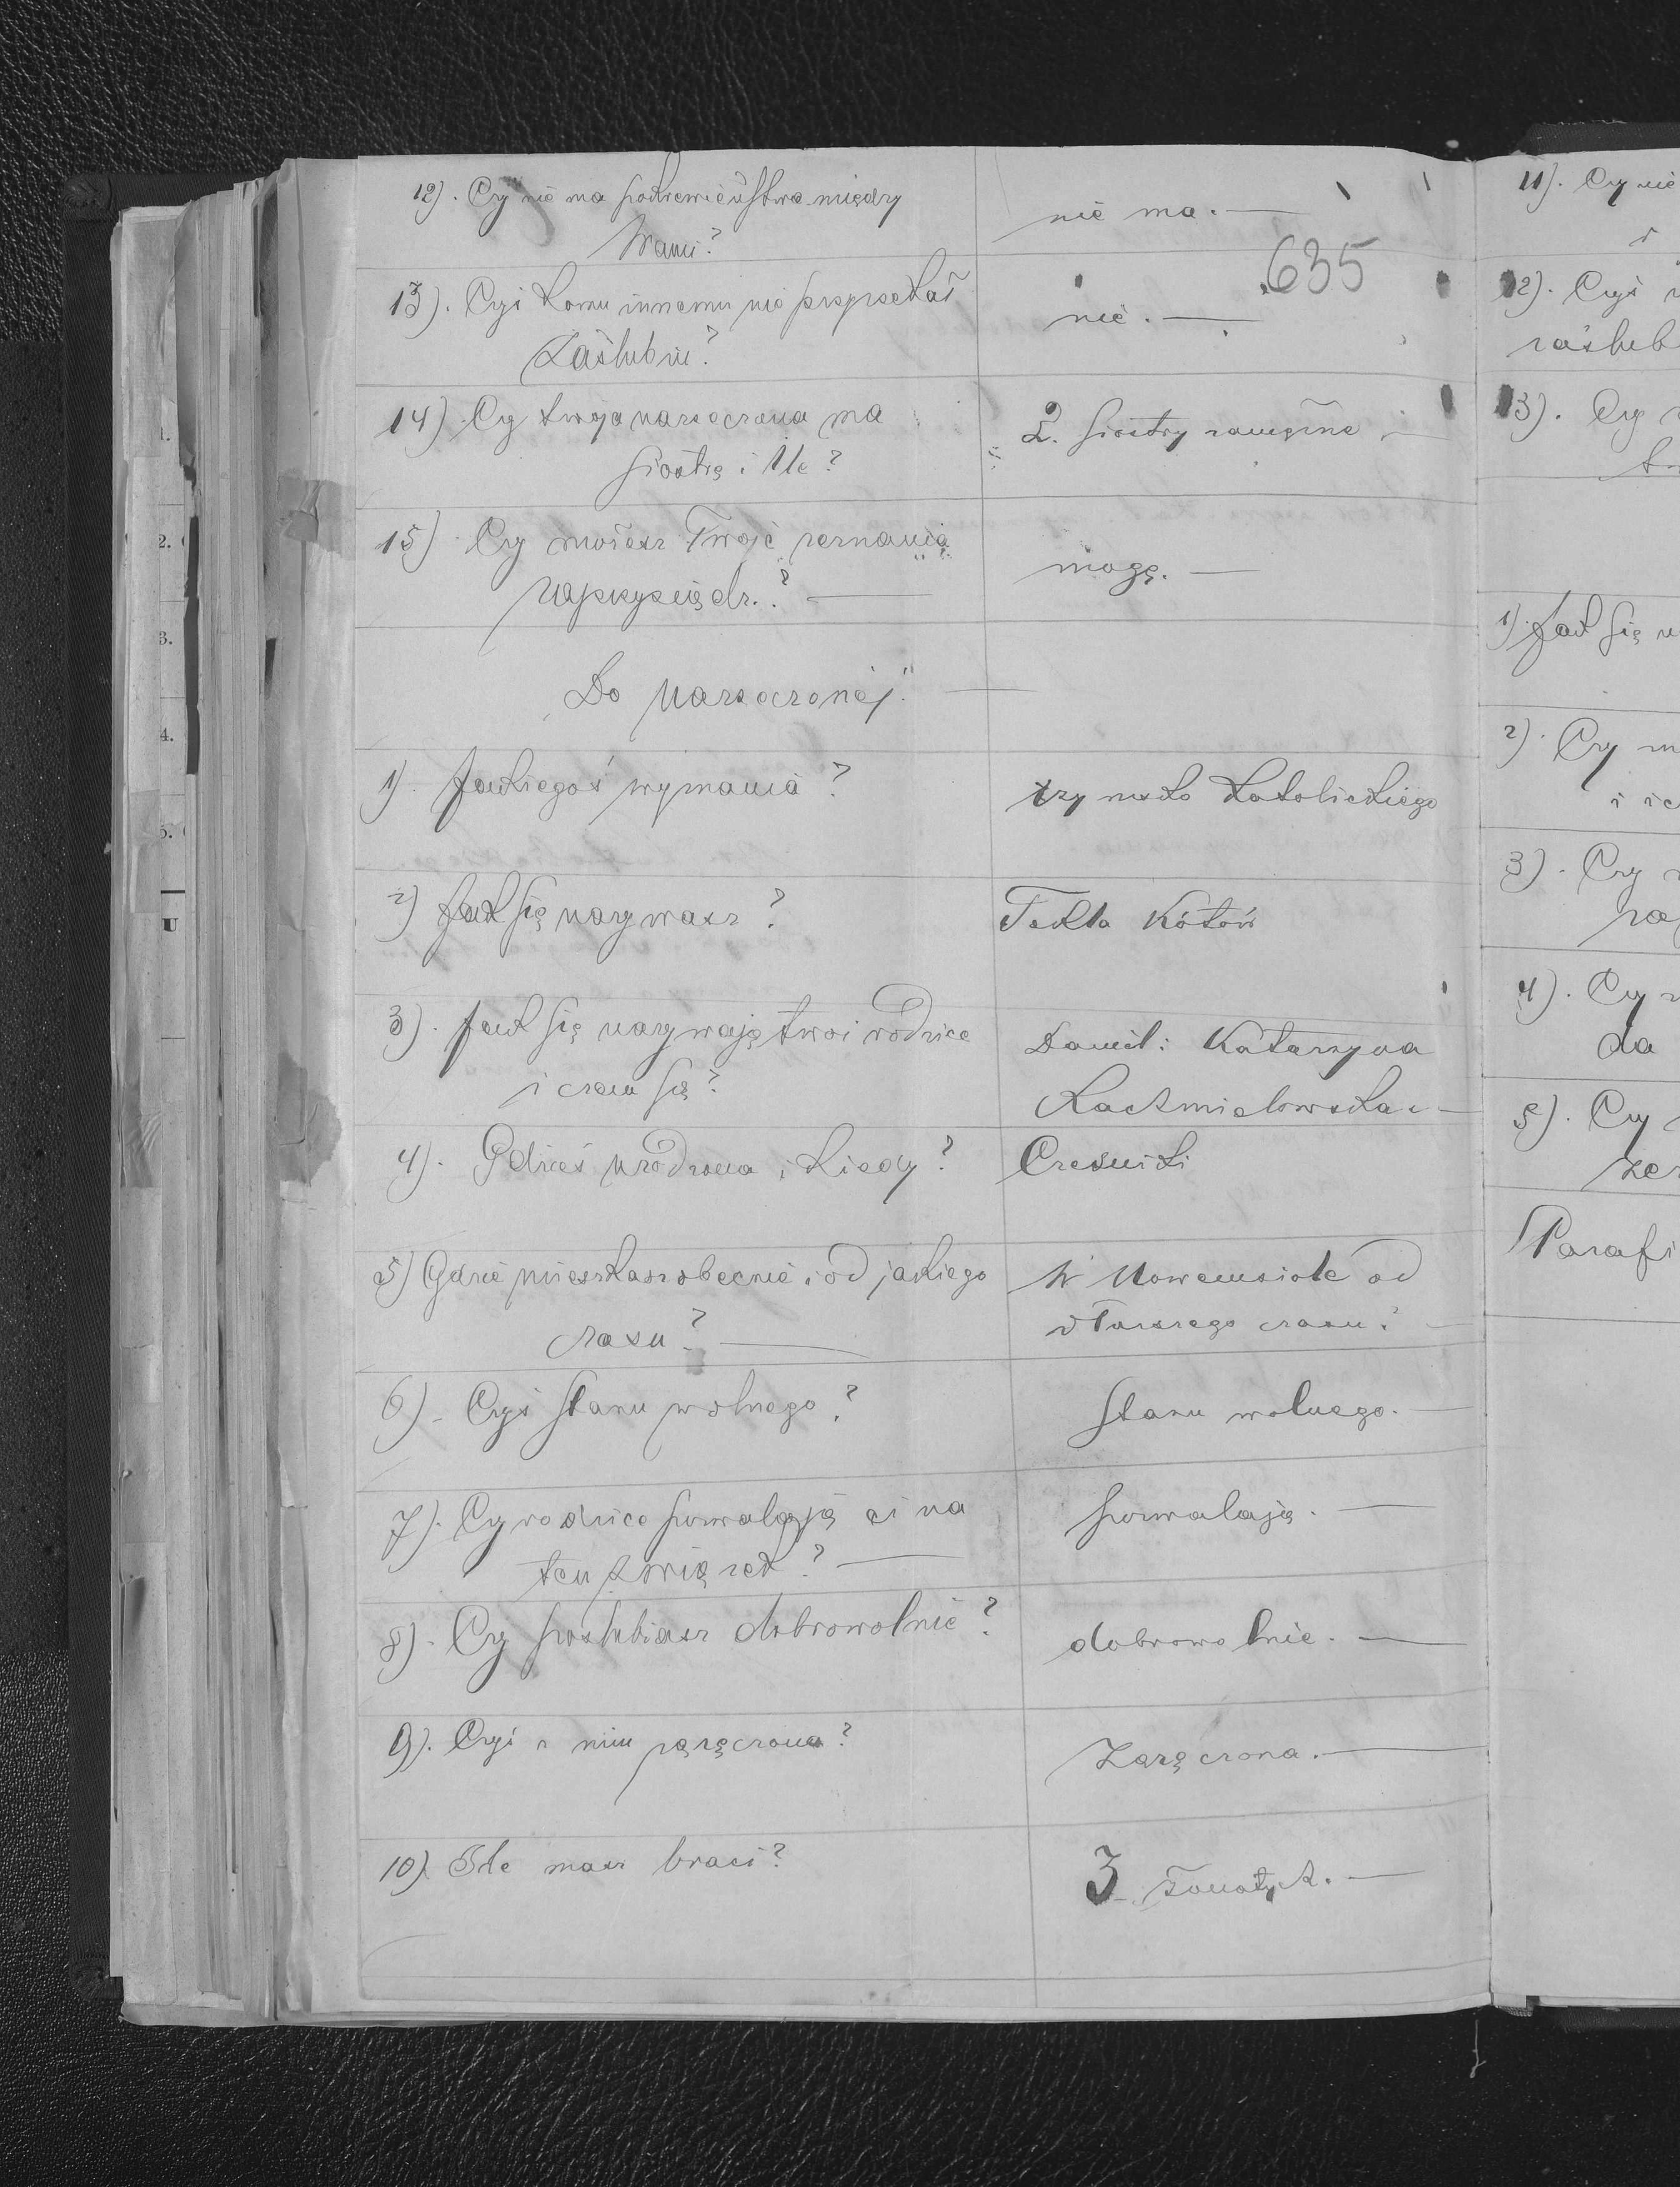 12). Czy nie ma pokrewieństwa między nie ma. —
Wami?
635
13). Czyś komu innemu nie przyrzekał nie. —
zaślubin?
14) Czy twoja narzeczona ma 2. siostry zamężne —
siostrę i ile?
15) Czy możesz Twoje zeznania mogę. —
zaprzysiędz.? —
Do narzeczonej. —
1) Jakiegoś wyznania? rzymsko katolickiego
2) Jak się nazywasz? Tekla Kotów
3). Jak się nazywają twoi rodzice Daniel i Katarzyna
i czem są?
4). Gdzieś urodzona i kiedy? Czesniki
5) Gdzie mieszkasz obecnie i od jakiego W Nowemsiole od
czasu? — dłuższego czasu. —
6). Czyś stanu wolnego? stanu wolnego. —
7). Czy rodzice pozwalają ci na pozwalają. —
ten związek? —
8). Czy poślubiasz dobrowolnie? dobrowolnie. —
9). Czyś z nim zaręczona? Zaręczona. —
10). Ile masz braci? 3 żonatych. —
1.
2.
3.
4.
5.
U
11). Czy nie
i
12). Czyś
zaślub
13). Czy
1) Jak się n
2). Czy m
3). Czy
4). Czy
da
5). Czy
zez
Parafi